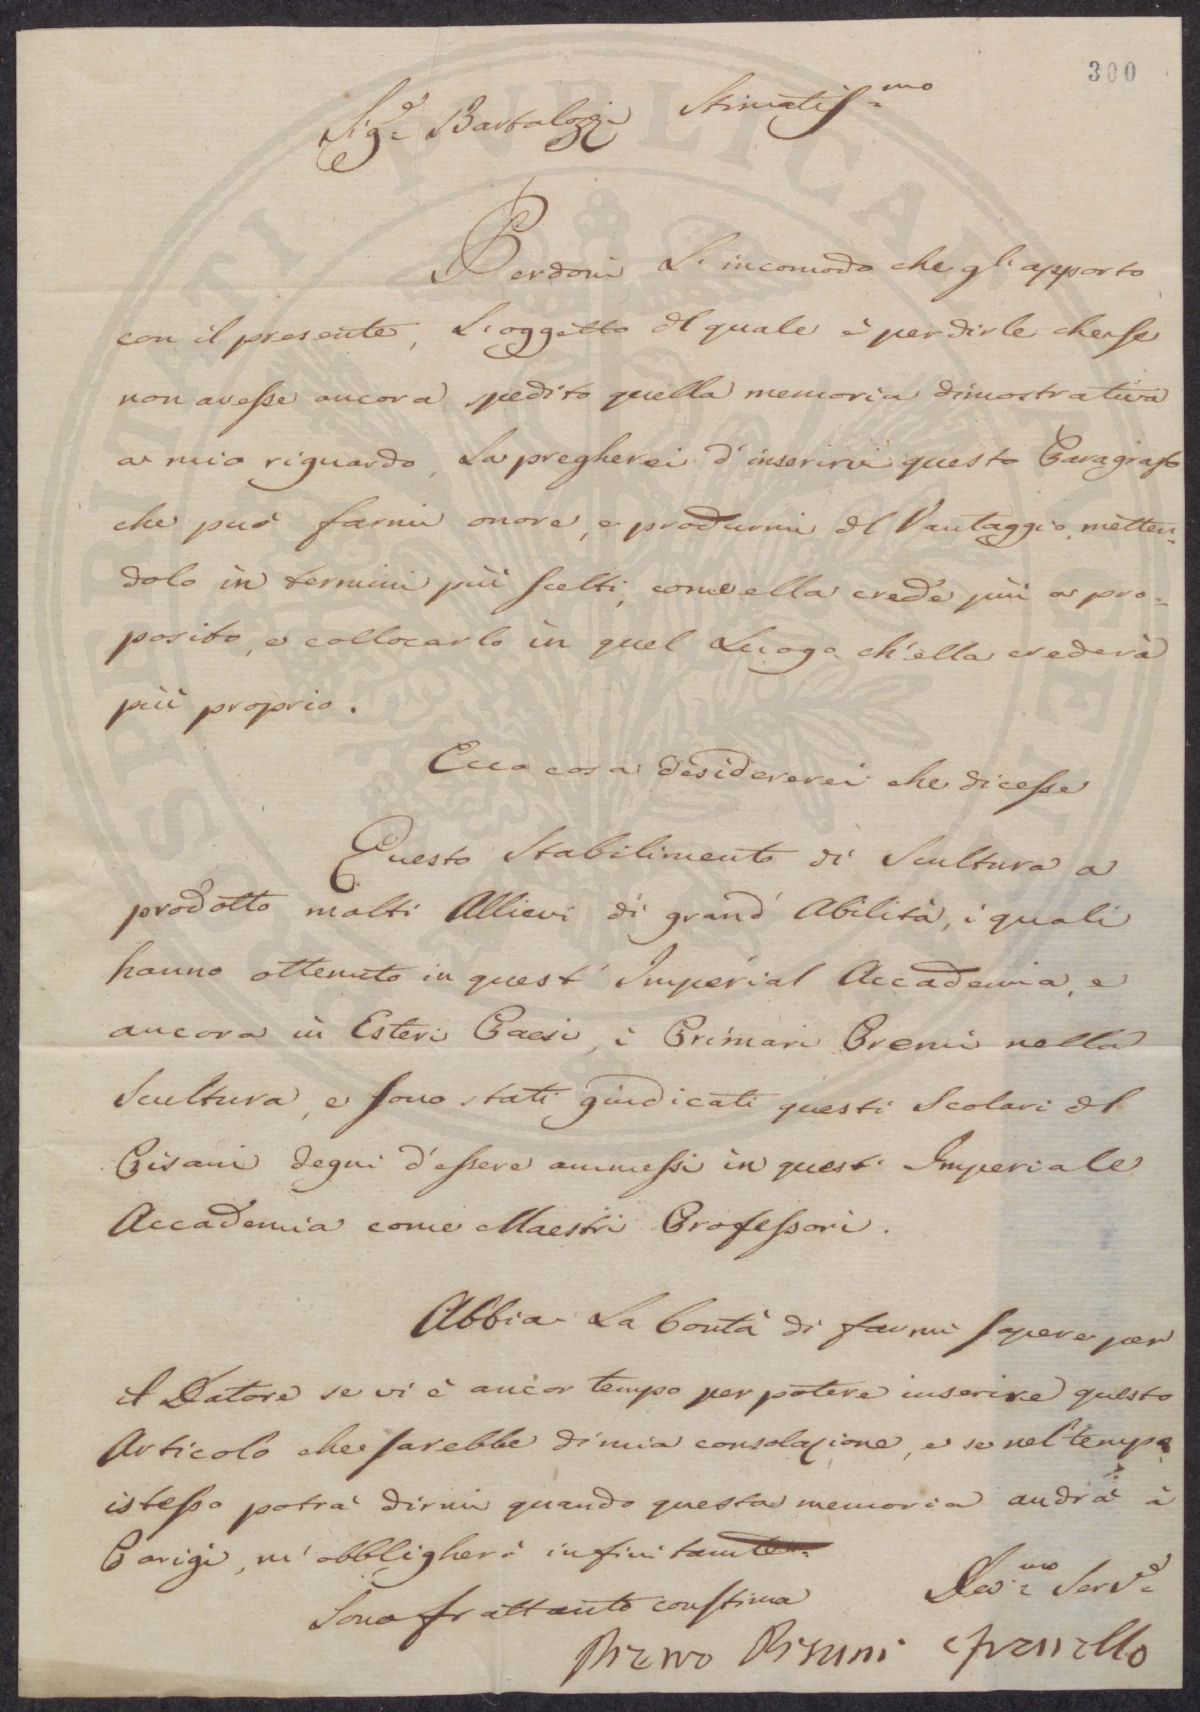 300
Sig.r Bartalozzi Stimatiss.mo
Perdoni L'incomodo che gli apporto
con il presente, L'oggetto del quale è per dirle che se
non avesse ancora spedito quella memoria dimostrativa
a mio riguardo, La pregherei d'inserirvi questo Paragrafo
che può farmi onore, e produrmi del Vantaggio, metten=
dolo in termini più scelti, come ella crede più a pro=
posito, e collocarlo in quel Luogo ch'ella crederà
più proprio.
Ecco cosa desidererei che dicesse
Questo Stabilimento di Scultura a
prodotto molti Allievi di grand' Abilità, i quali
hanno ottenuto in quest' Imperial Accademia, e
ancora in Esteri Paesi, i Primari Premi nella
Scultura, e sono stati giudicati questi Scolari del
Pisani degni d'essere ammessi in quest' Imperiale
Accademia come Maestri Professori.
Abbia La bontà di farmi sapere per
il Datore se vi è ancor tempo per potere inserire questo
Articolo che sarebbe di mia consolazione, e se nel tempo
istesso potrà dirmi quando questa memoria andrà à
Parigi, m'obbligherà infinitamte
Sono frattanto con stima
Dev.mo Serv.e
Pisani
SPRINNATI PVBLICAE